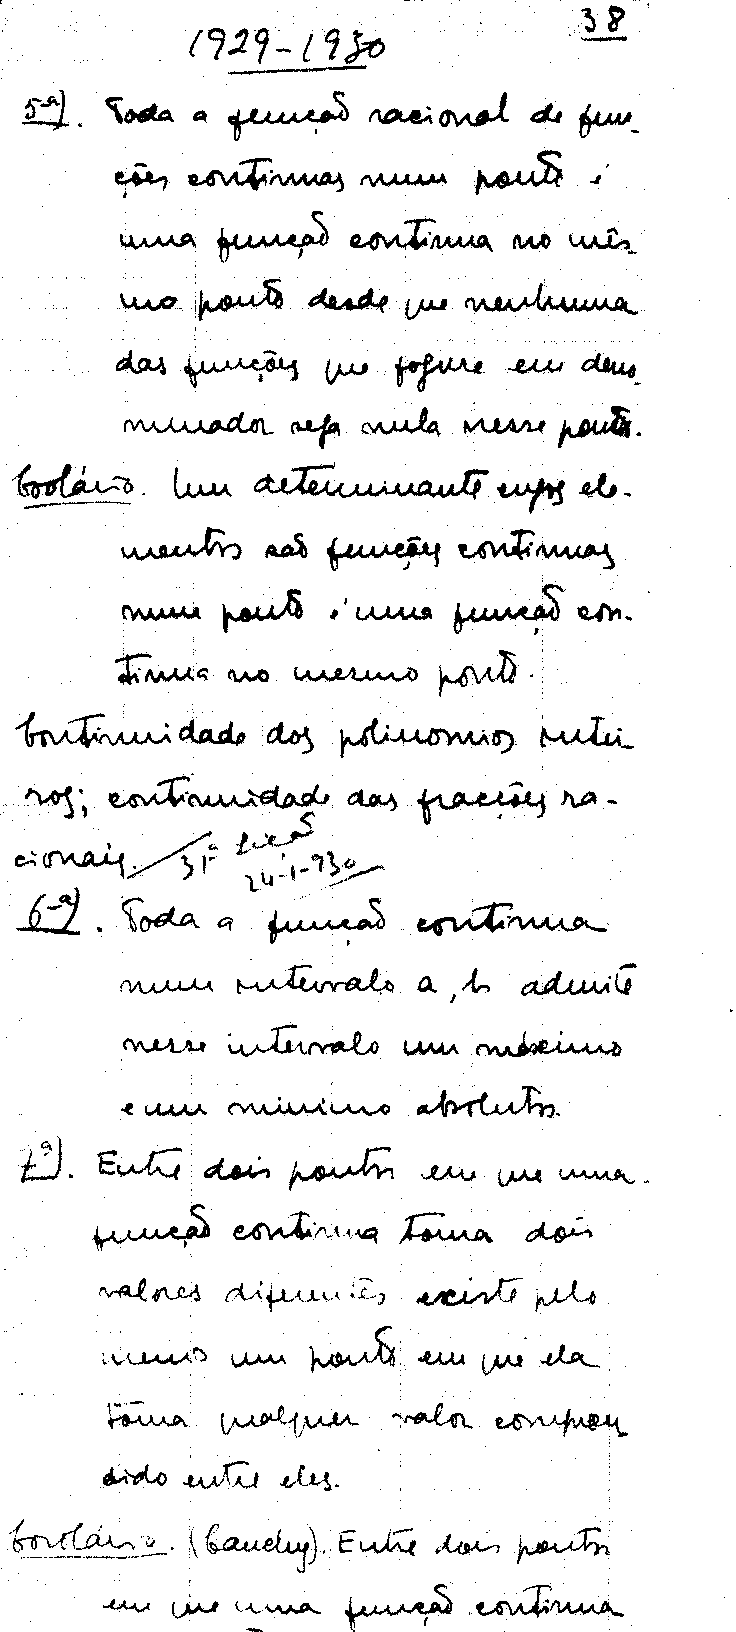 38
1929-1930
5-ª). Toda a função racional de fun-
ções continuas num ponto é
uma função continua no mês-
mo ponto desde que nenhuma
das funções que figure em deno-
minador seja nula nesse ponto.
Corolário. Um determinante cujos ele-
mentos são funções continuas
num ponto é uma função con-
tinua no mesmo ponto.
Continuidade dos polinomios intei-
ros; continuidade das fracções ra-
cionais. 31ª lição
24-1-930
6-ª). Toda a função continua
num intervalo a, b admite
nesse intervalo um máximo
e um minimo absolutos.
7ª). Entre dois pontos em que uma
função continua toma dois
valores diferentes existe pelo
menos um ponto em que ela
toma qualquer valor compreen
dido entre eles.
Corolário. (Cauchy). Entre dois pontos
em que uma função continua